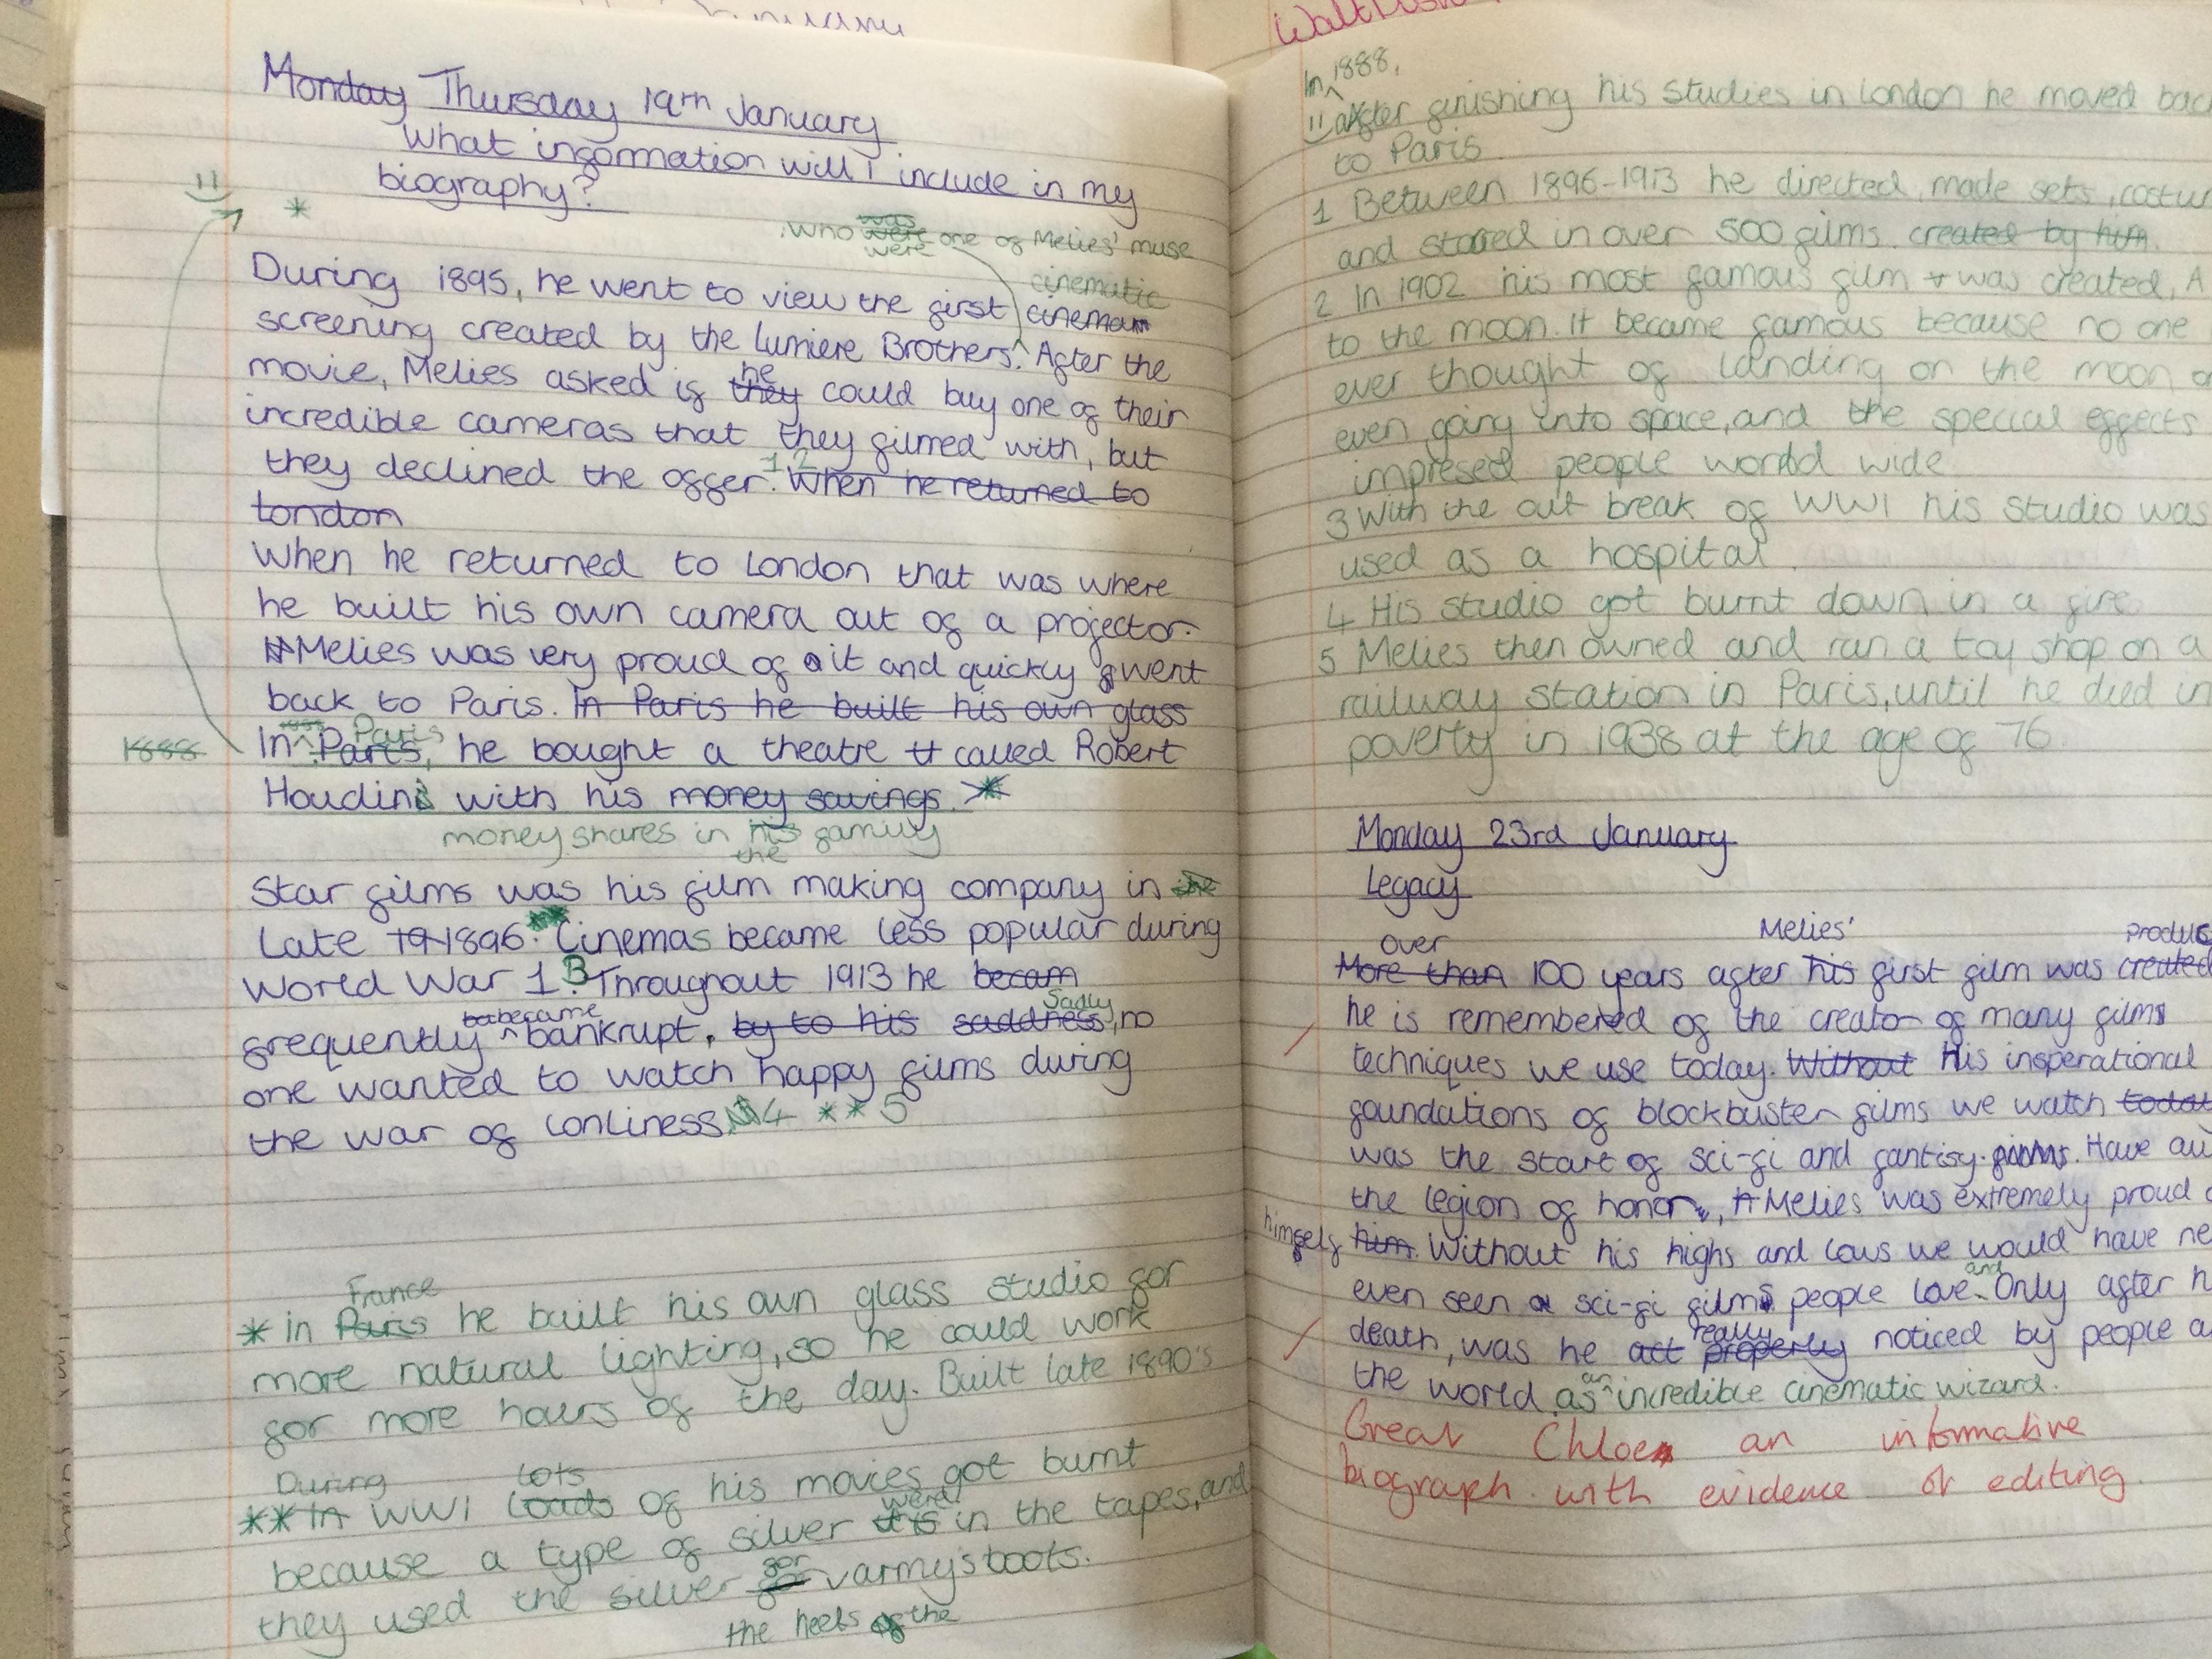 Monday Thursday 19th January
What information will I include in my
biography?
*
, who was were one of Melies' muse
were
cinematic
During 1895, he went to view the first cinema
screening created by the Lumiere Brothers. After the
he
movie, Melies asked if they could buy one of their
incredible cameras that they filmed with, but
1 2
they declined the offer. When he returned to
London
When he returned to London that was where
he built his own camera out of a projector.
Melies was very proud of it and quickly went
back to Paris. In Paris he built his own glass
Paris
1888 In Paris, he bought a theatre called Robert
Houdini with his money savings.
money shares in his family
the
Star films was his film making company in the
Late 19 1896. Cinemas became less popular during
World War 1. 3 Throughout 1913 he becam
became Sadly
frequently bankrupt, by to his saddness, no
one wanted to watch happy films during
the war of lonliness. 4 ** 5
France
* in Paris he built his own glass studio for
more natural lighting, so he could work
for more hours of the day. Built late 1890's
During lots
** In WW1 loads of his movies got burnt
were
because a type of silver it is in the tapes, and
for
they used the silver for army's boots.
the heels of the
Walt
In 1888,
11 after finishing his studies in London he moved bac
to Paris.
1 Between 1896-1913 he directed, made sets, costum
and starred in over 500 films. created by him.
2 In 1902 his most famous film was created, A
to the moon. It became famous because no one
ever thought of landing on the moon or
even going into space, and the special effects
impresed people world wide
3 With the out break of WW1 his studio was
used as a hospital.
4 His studio got burnt down in a fire.
5 Melies then owned and ran a toy shop on a
railway station in Paris, until he died in
poverty in 1938 at the age of 76.
Monday 23rd January
Legacy
over Melies' produc
More than 100 years after his first film was created
he is remembered of the creator of many films
techniques we use today. Without His insperational
foundations of blockbuster films we watch today
was the start of sci-fi and fantisy. films. Have
the legion of honor, Melies was extremely proud o
himself him. Without his highs and lows we would have ne
and
even seen a sci-fi films people love. Only after h
really
death, was he act properly noticed by people a
an
the world as incredible cinematic wizard.
Great Chloe an informative
biograph with evidence of editing.